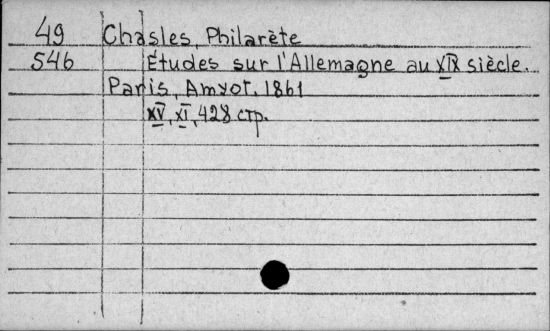 49 Chasles, Philarète
546 Études sur l'Allemagne au XIX siècle.
Paris, Amyot, 1861
XV, XI, 428 стр.